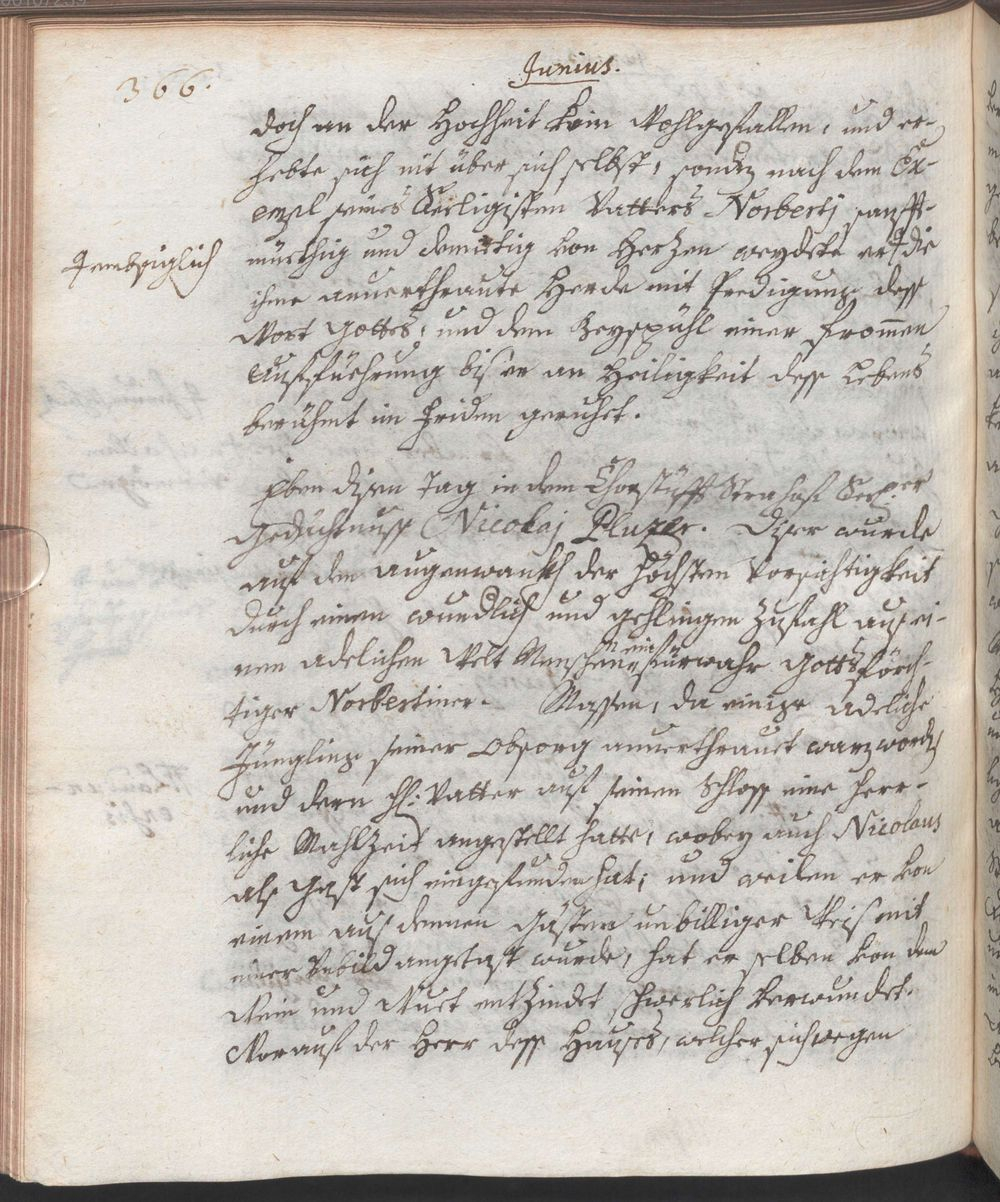 366.
Junius.
doch an der Hochheit kein Wohlgefallen, und er-
hebte sich nit über sich selbst, sondern nach dem Ex-
empl seines Heiligisten Vatters Norbertj sanfft-
müethig und demüetig von Herzen weydete er die
Jembsiglich
ihme anuerthraute Herde mit Predigung dess
Wort Gottes, und dem Beyspühl einer frommen
Aufführung bis er an Heiligkeit dess Lebens
berühmt im Friden geruhet.
Eben disen Tag in dem Chorstüfft
Gedächtnuss Nicolaj Diser wurde
auß dem augenwinkh der Höchsten Vorsichtigkeit
durch einen wundlich und gehlingen Zufahl auß ei-
nem adelichen Welt Menschen ein fürwahr Gottsförch-
tiger Norbertiner. Massen, da einige adeliche
Jüngling seiner Obsorg anuerthrauet waren worden
und dern H: Vatter auf seinen Schloss eine herr-
liche Mahlzeit angestellt hatte, wobey auch Nicolaus
als Gast sich eingefunden hat; und weilen er von
einem auß dennen Gästen unbilliger Weis mit
einer Unbild angetast wurde, hat er selben von dem
Wein und Wuet entzindet schwerlich verwundet.
Worauf der Herr dess Hauses, welcher sich wegen